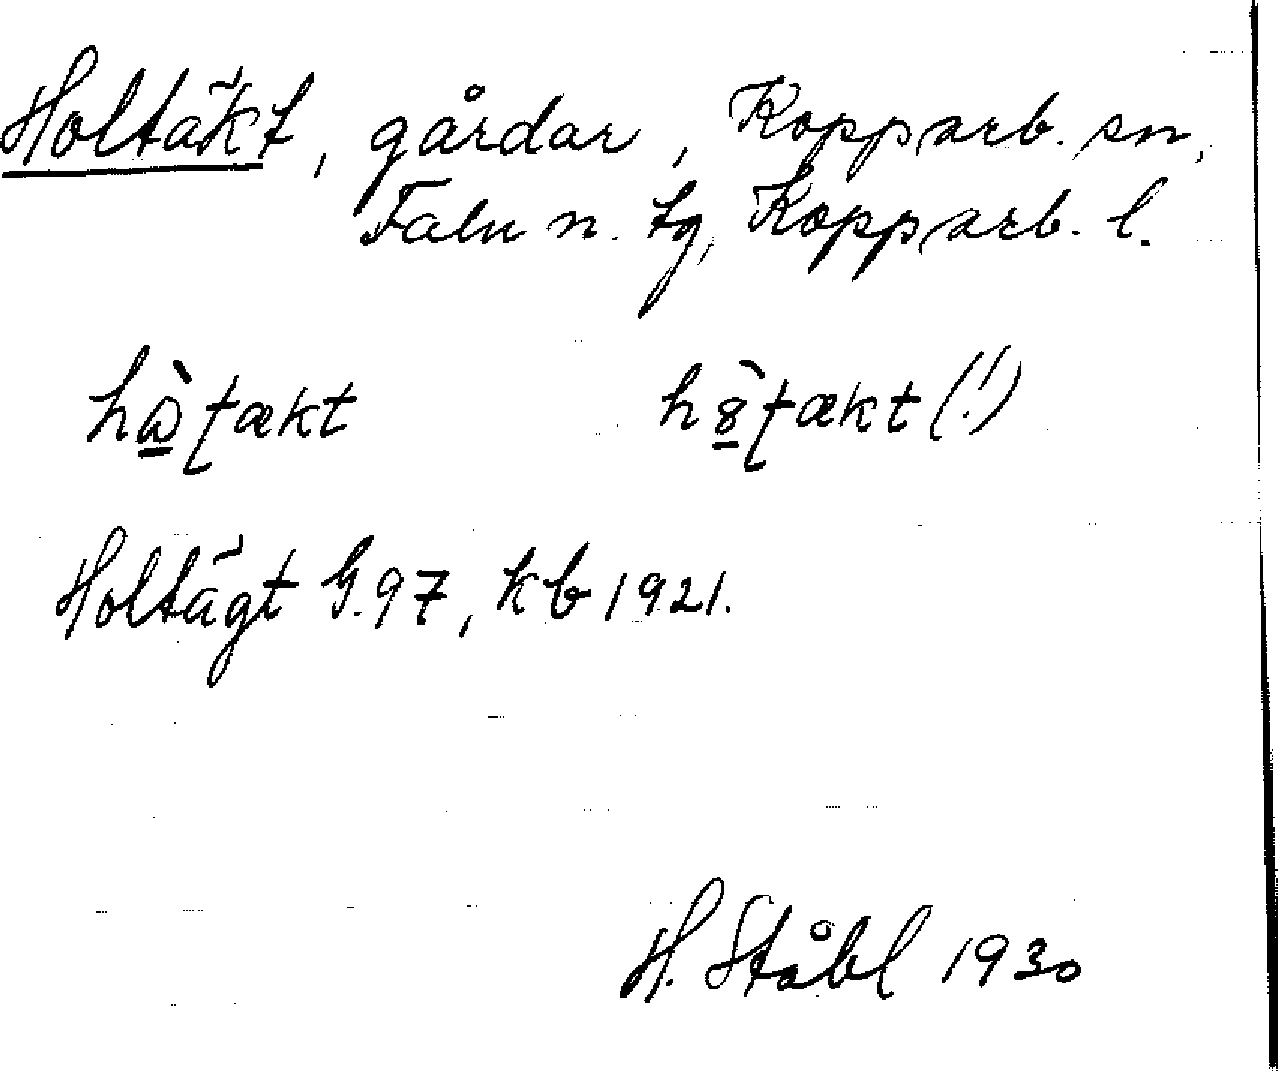 Holtäkt, gårdar, Kopparb. sn,
Falu n. tg, Kopparb. l.
Holtägt G. 97, kb 1921.
H. Ståhl 1930